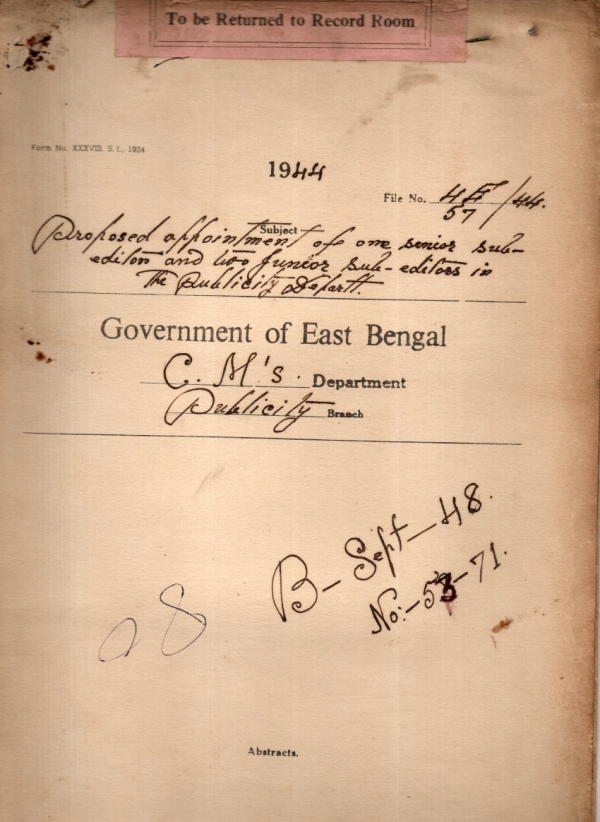 To be Returned to Record Room
Form No. XXXVIII. S. I., 1924.
1944
File No. 4E/57/44.
Subject
Proposed appointment of one senior sub-
editor and two junior sub-editors in
the Publicity Departt.
Government of East Bengal
C. M's. Department
Publicity Branch
B- Sept-48.
No:-58-71.
Abstracts.